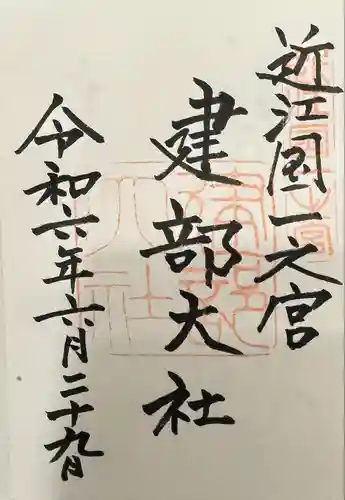 近江國一之宮
建部大社
令和六年六月二十九日